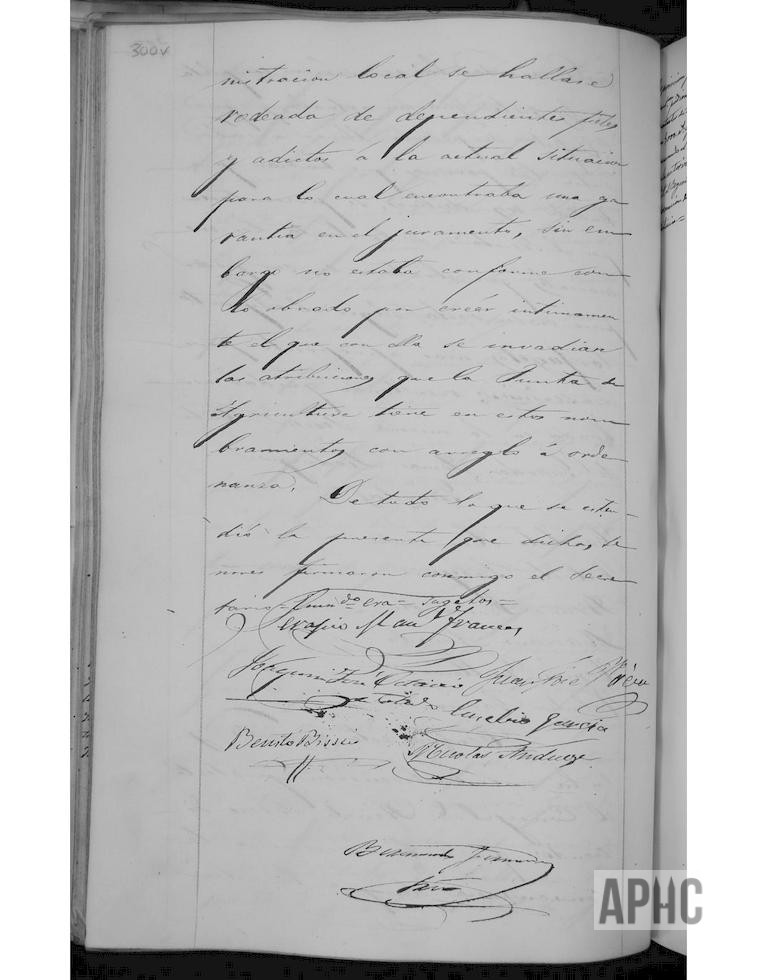 300v
nistracion local se hallase
rodeada de dependientes
y adictos á la actual situacion
para lo cual encontraba una ga
rantia en el juramento, sin em
bargo no estaba conforme con
lo obrado por creér intimamen
te el que con ella se invadian
las atribuciones que la Junta de
Agricultura tiene en estos nom
bramientos con arreglo á orde
nanza. De todo lo que se esten-
dió la presente que dichos se
nores firmaron conmigo el Secre
tario= era= sugetos=
Joaquin José Juan José
Eusebio Garcia
Benito Nicolas Andueza
Bernardo
APHC